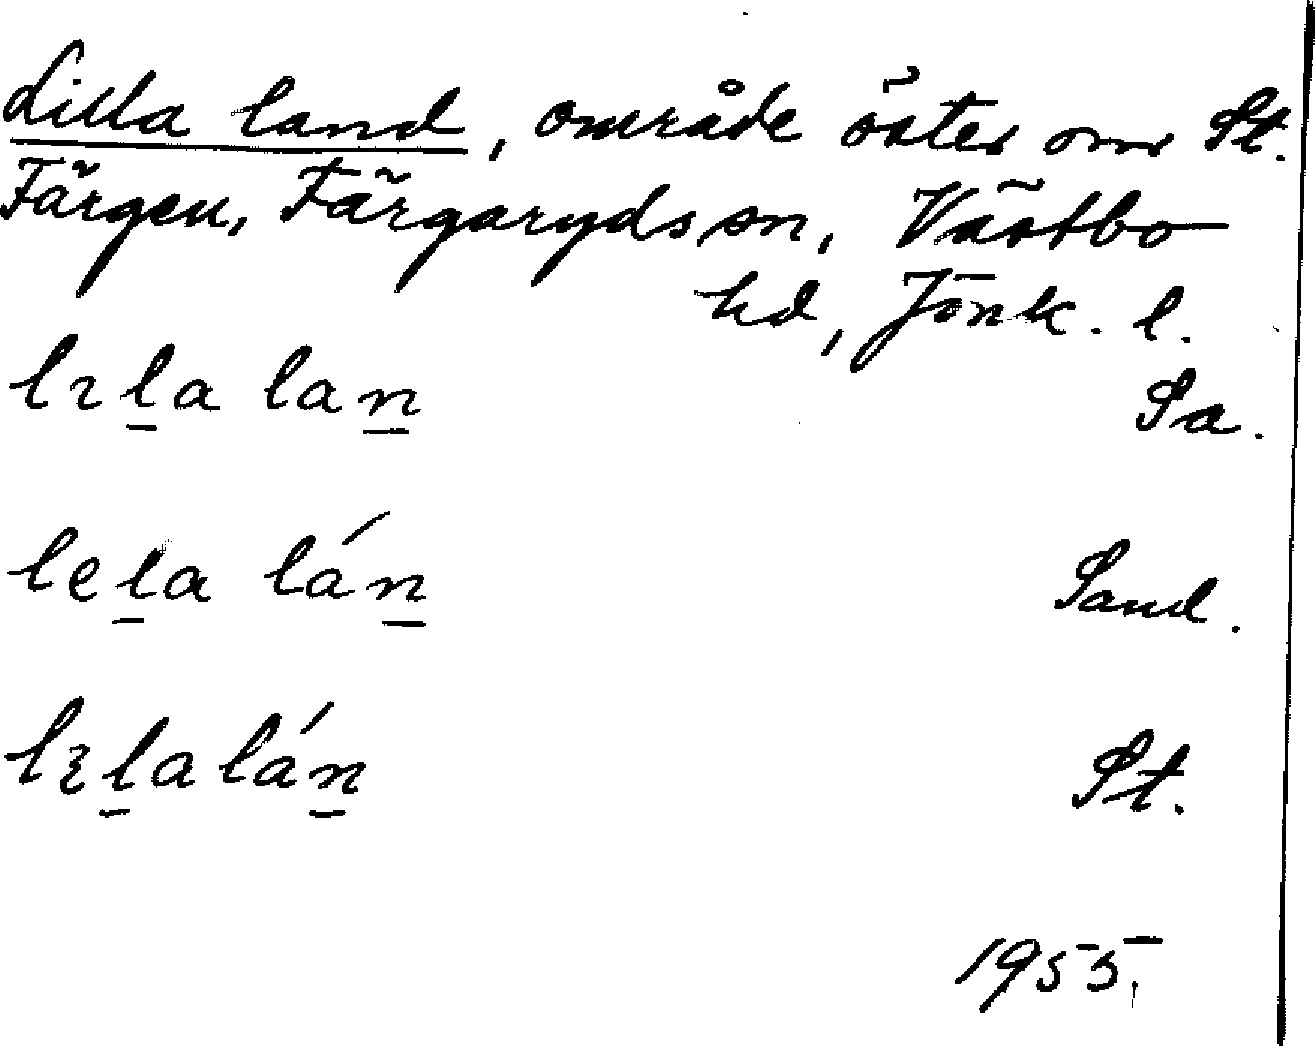 Lilla land, område öster om St.
Färgen, Färgaryds sn, Västbo
hd, Jönk. l.
lɩl̲a lan̲ Sa.
lel̲a lán̲ Sand.
l̲a lán̲ St.
1955.